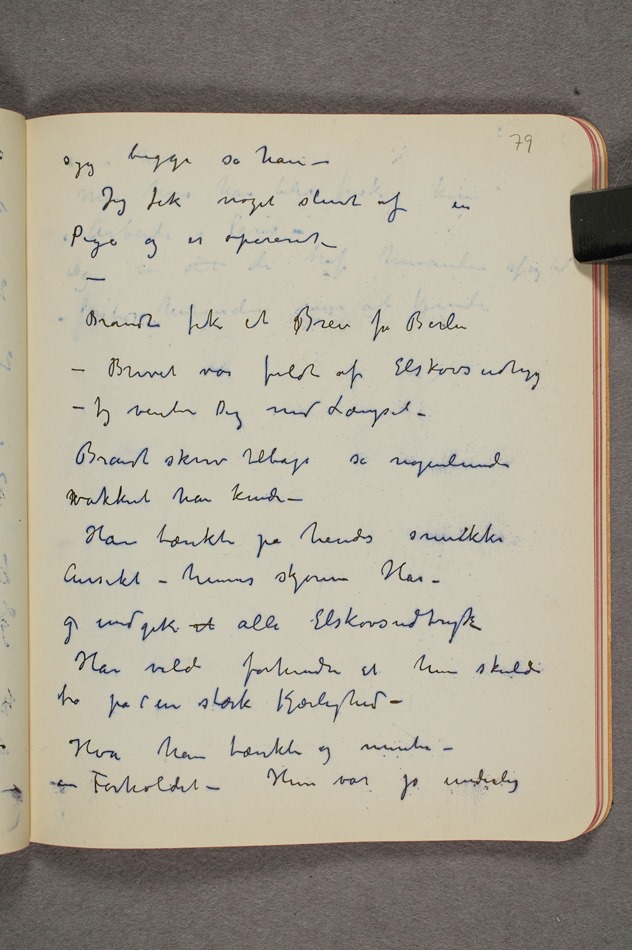 79
syg begge sa han –
Jeg fik noget slemt af en
Pige og er opereret –
—
Brandt fik et Brev fra Berlin
– Brevet var fuldt af Elskovsudtryg
– Jeg venter Dig med Længsel –
Brandt skrev tilbage så nogenlunde
vakkert han kunde –
Han tænkte på hendes smukke
Ansikt – hennes skjønne Hår –
og undgik et alle Elskovsudtryk
Han vilde forhindre at hun skulde
tro på en stærk Kjærlighed –
Hva han tænkte og mente –
om Forholdet – Hun var jo underlig